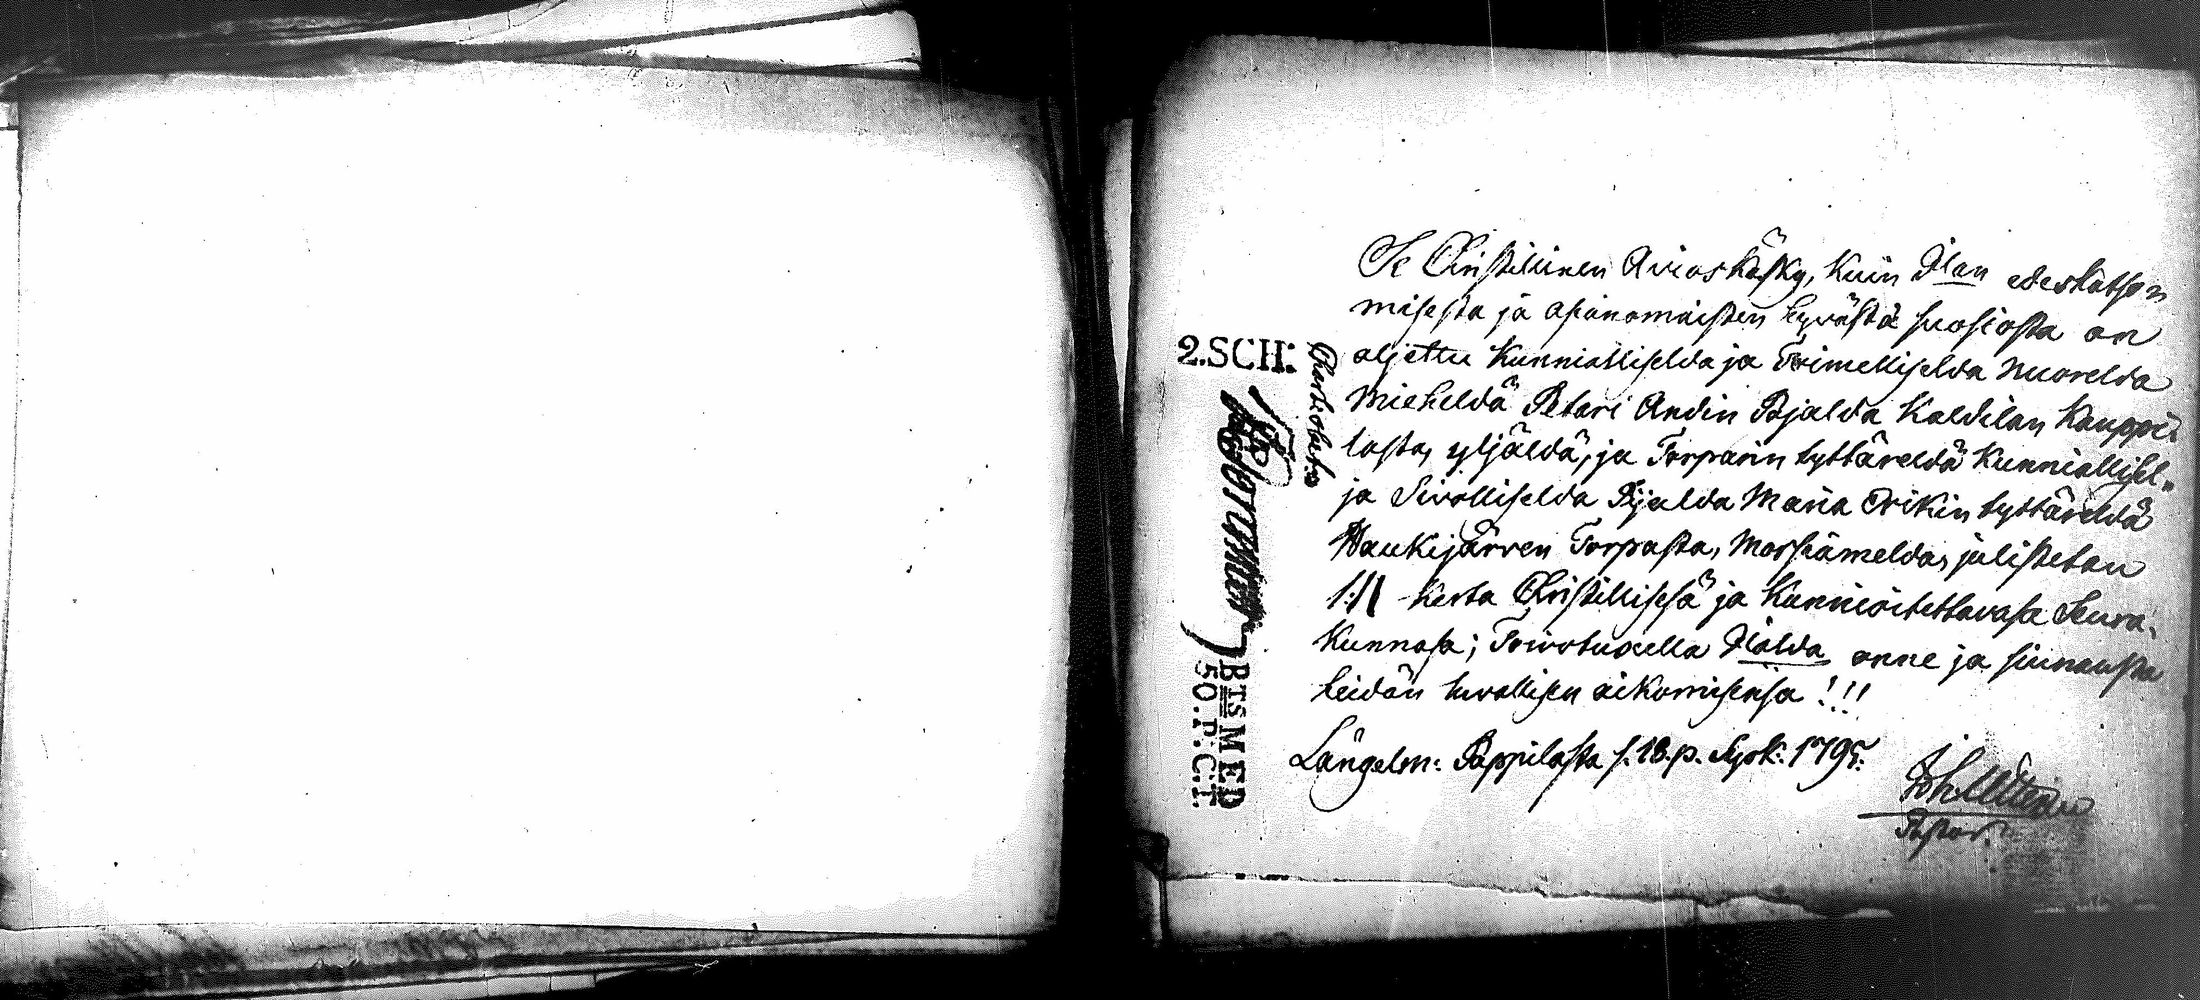 Se Christillinen Avioskäsky, kuin Jilan edeskatson
misesta ja asianomaisten hyvästä suosiosta on
aljettu Kunnialliselda ja Toimelliselda Nuorelda
Mieheldä Petari Andin Pojalda Kaldilan Kauppi
lasta, yljäldä, ja Torparin tyttäreldä Kunniallisel.
ja Siwolliselda Pijalda Maria Erikin tyttäreldä
Haukijärven Torpasta, Morsiamelda, julistetan
1:// kerta Christillisesä ja Kunnioitettavasa Seura,
Kunnasa; Toivotuxella Jlälda onne ja siunausta
heidän luvallisen aikomisensa!!!
Längelm: Pappilasta s. 18. p. Syysk: 1795.
Joh. Utter
Pastor.
2.SCH:
Charta
BTS MED
50.P.C.T.